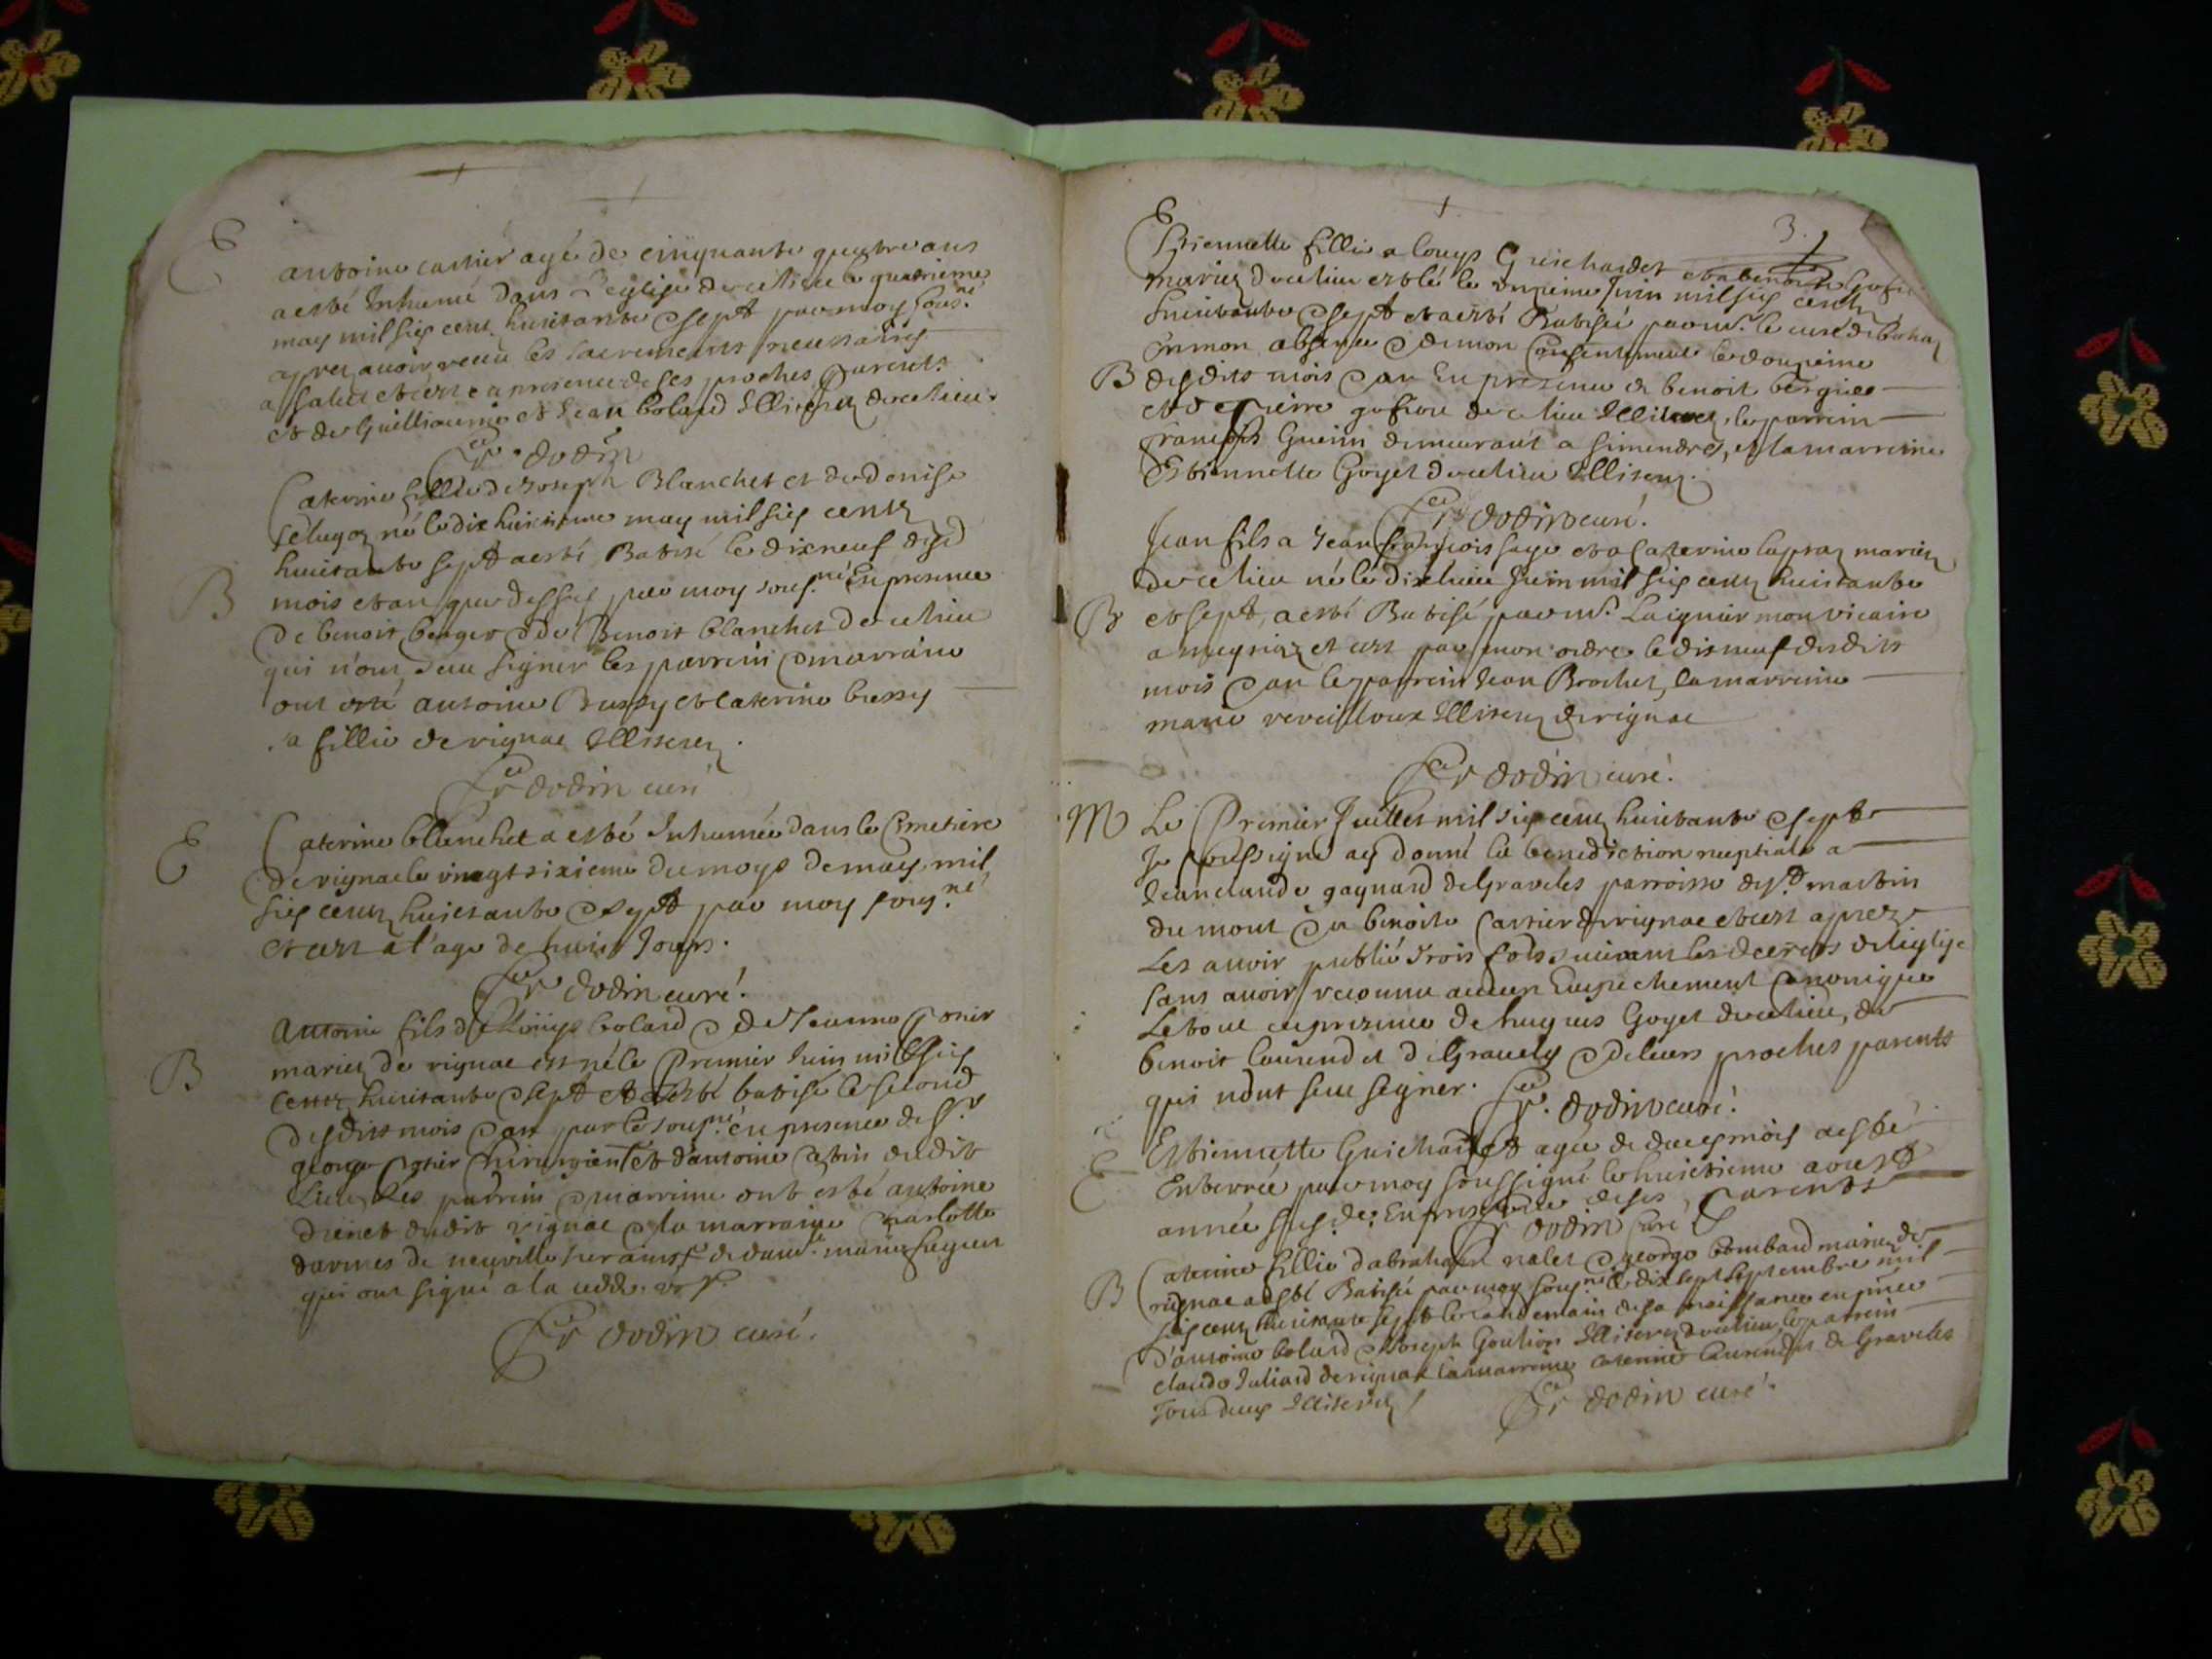 E
antoine cartier agé de cinquante quattre ans
a esté Inhumé dans L'eglise de ce lieu le quatrieme
may mil six centz huictante & sept par moy sous.né
aprez avoir receu les sacrements necessaires
a salut et c'est en presence de ses proches parents
et de Guilliaume et Jean bolard Illiterez de ce lieu.
fr dodin
Caterine fillie de Joseph Blanchet et de denise
né le dix huictieme may mil six centz
huictante sept a esté Batisé le dix neuf dud
B
mois et an que dessus par moy sous.né En presence
de benoit berger & de Benoit blanchet de ce lieu
qui n'ont sceu signer les parrein & marraine
ont esté antoine Bussy et Caterine bussy
sa fillie de rignac Illiterez.
fr dodin curé
E
Caterine blanchet a esté Inhumée dans le Cimetiere
de rignac le vingt sixieme du moys de may mil
six centz huictante & sept par moy sous.né
et c'est à l'age de huict Jours.
fr dodin curé.
Antoine fils de Louys bolard & de Jeanne
B
mariez de rignac est né le Premier Juin mil six
centz huictante & sept et a esté batisé le second
desdits mois & an par le sous.né en presence de Sr
george chirurgien et d'antoine dudit
Lieu, Les parrein & marreine ont esté antoine
drenet dudit rignac & la marraine charlotte
de neuville
qui ont signé a la
fr dodin curé.
3.
Estiennette fillie a Louys Guichardet et a benoite
mariez de ce lieu est née le onzieme Juin mil six centz
huictante & sept et a esté Batisée par mr. le curé de bohaz
En mon absence & de mon Consentement le douzieme
B
desdits mois & an En presence de benoit berger
et de Pierre gofion de ce lieu Illiterez, le parrein
françois Guerin demeurant a simandre, et la marreine
Estiennette Goyet de ce lieu Illiterez.
fr dodin curé.
Jean fils a Jean françois sage et a Caterine lapraz mariez
de ce lieu né le dixhuict Juin mil six centz huictante
B
et sept, a esté Batisé par mr. Laignier mon vicaire
a meyriaz et c'est par mon ordre le dix neuf desdits
mois & an le parrein Jean Brochet, la marreine
marie reveilloux Illiterez de rignac
fr dodin curé.
M
Le Premier Juillet mil six centz huictante & sept
Je soussigné ay donné la benediction nuptiale a
Jean claude gagnard de Graveles parroisse de St martin
du mont & a benoite Cartier de rignac et c'est aprez
Les avoir publié trois fois suivant les decrets de l'eglise
sans avoir reconnu aucun Empechement canonique
Le tout en presence de hugues Goyet de ce lieu, de
benoit laurendet de Gravelles & de leurs proches parents
qui n'ont sceu signer.
fr. dodin curé.
E
Estiennette Guichardet agée de deux mois a esté
Enterrée par moy soussigné le huictieme aoust
année sus.de. En presence de ses Parents
fr dodin curé
B
Caterine fillie d'abraham nalet & george bombard mariez de
rignac a esté Batisée par moy sous.né le dix sept septembre mil
six centz huictante sept le lendemain de sa naissance en pnce
d'antoine bolard & Joseph Goution Illiterez de ce lieu, le parrein
claude Juliard de rignac la marreine Caterine Laurendet de Graveles
Tous deux Illiterez
fr dodin curé.